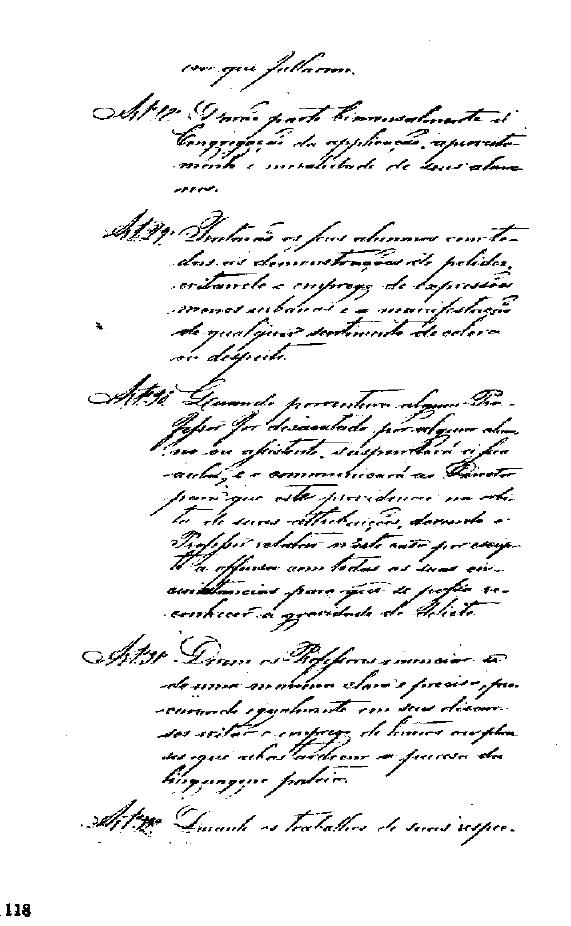 em que fallarem.
Darão parte bimensalmente á
Congregação da applicação, aproveita-
mento e moralidade de seus alum-
nos.
Tratarão os seus alumnos com to-
das as demonstrações de polidez,
evitando o emprego de expressões
menos urbanas e a manifestação
de qualquer sentimento de colera
ou despeito.
Quando porventura algum Pro-
fessor for desacatado por algum alum-
no ou assistente, suspenderá a sua
aula, e o communicará ao Director
para que este providencie na orbi-
ta de suas attribuições, devendo o
Professor relatar n'este caso por escrip-
to a offensa com todas as suas cir-
cumstancias para que se possa re-
conhecer a gravidade do delicto.
Devem os Professores enunciar-se
de uma maneira clara e precisa, pro-
curando egualmente em seus discur-
sos evitar o emprego de termos ou phra-
ses que a pureza da
linguagem patria.
Durante os trabalhos de suas respec-
118